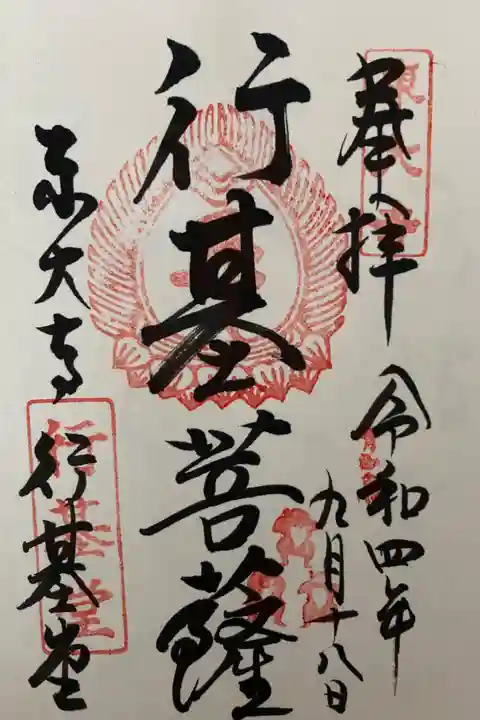 奉拝
令和四年
九月十八日
行基菩薩
東大寺
行基堂
行基堂